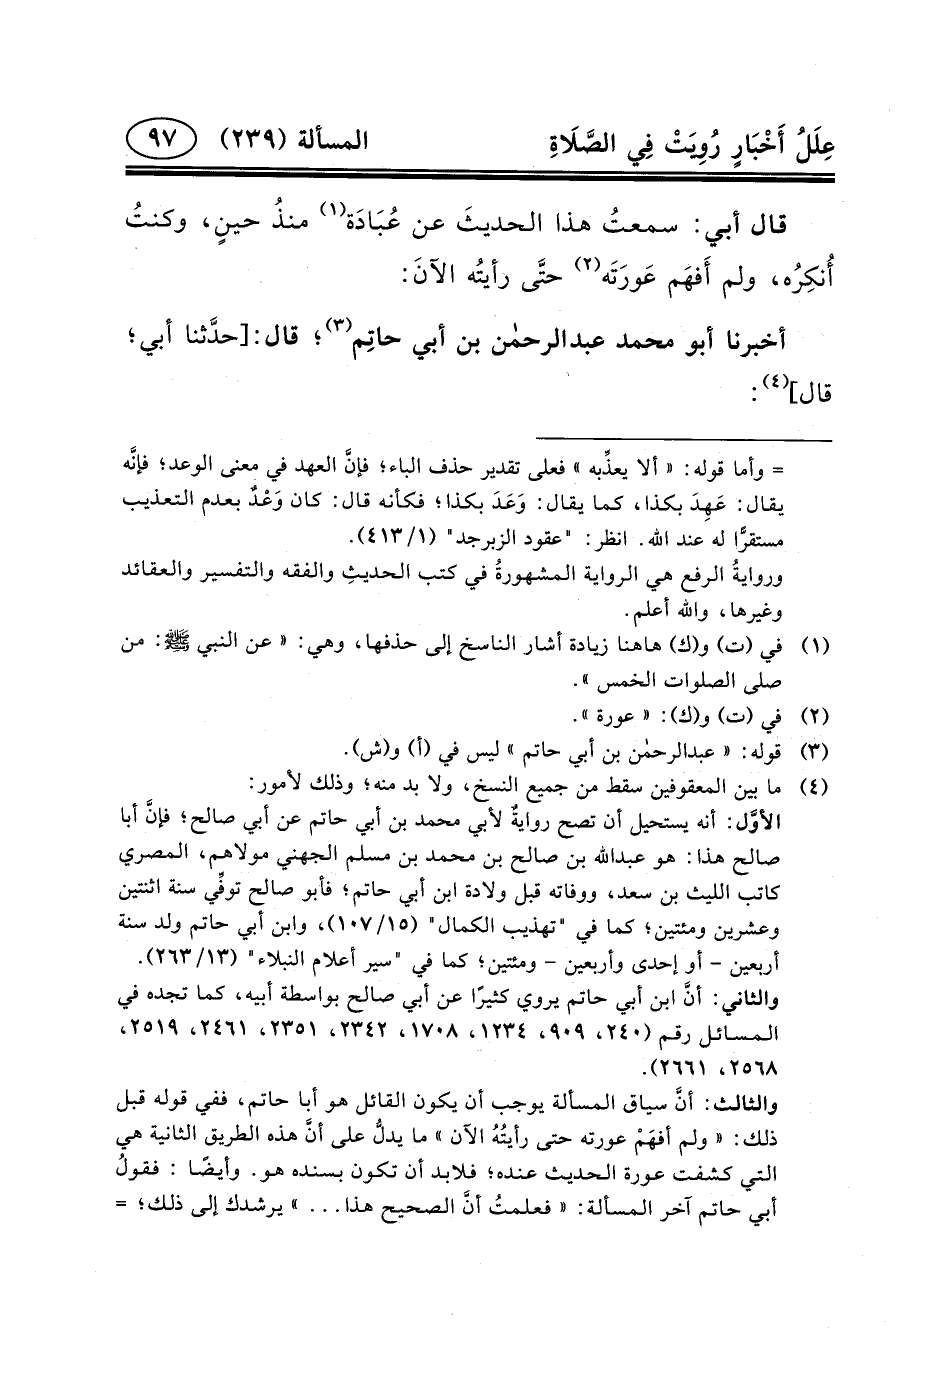 عِلَلُ أَخْبَارٍ رُوِيَتْ فِي الصَّلَاةِ المسألة (٢٣٩) ٩٧
قال أبي: سمعتُ هذا الحديثَ عن عُبَادَة(١) منذُ حينٍ، وكنتُ
أُنكِرُه، ولم أَفهَم عَورَتَه(٢) حتَّى رأيتُه الآنَ:
أخبرنا أبو محمد عبدالرحمٰن بن أبي حاتِم(٣)؛ قال:[حدَّثنا أبي؛
قال](٤):
= وأما قوله: « ألا يعذِّبه » فعلى تقدير حذف الباء؛ فإنَّ العهد في معنى الوعد؛ فإنَّه
يقال: عَهِدَ بكذا، كما يقال: وَعَدَ بكذا؛ فكأنه قال: كان وَعْدٌ بعدم التعذيب
مستقرًّا له عند الله. انظر: "عقود الزبرجد" (٤١٣/١).
وروايةُ الرفع هي الرواية المشهورةُ في كتب الحديثِ والفقه والتفسير والعقائد
وغيرها، والله أعلم.
(١) في (ت) و(ك) هاهنا زيادة أشار الناسخ إلى حذفها، وهي: « عن النبي ﷺ: من
صلى الصلوات الخمس ».
(٢) في (ت) و(ك): « عورة ».
(٣) قوله: « عبدالرحمٰن بن أبي حاتم » ليس في (أ) و(ش).
(٤) ما بين المعقوفين سقط من جميع النسخ، ولا بد منه؛ وذلك لأمور:
الأوَّل: أنه يستحيل أن تصح روايةٌ لأبي محمد بن أبي حاتم عن أبي صالح؛ فإنَّ أبا
صالح هذا: هو عبدالله بن صالح بن محمد بن مسلم الجهني مولاهم، المصري
كاتب الليث بن سعد، ووفاته قبل ولادة ابن أبي حاتم؛ فأبو صالح توفِّي سنة اثنتين
وعشرين ومئتين؛ كما في "تهذيب الكمال" (١٠٧/١٥)، وابن أبي حاتم ولد سنة
أربعين - أو إحدى وأربعين - ومئتين؛ كما في "سير أعلام النبلاء" (٢٦٣/١٣).
والثاني: أنَّ ابن أبي حاتم يروي كثيرًا عن أبي صالح بواسطة أبيه، كما تجده في
المسائل رقم (٢٤٠، ٩٠٩، ١٢٣٤، ١٧٠٨، ٢٣٤٢، ٢٣٥١، ٢٤٦١، ٢٥١٩،
٢٥٦٨، ٢٦٦١).
والثالث: أنَّ سياق المسألة يوجب أن يكون القائل هو أبا حاتم، ففي قوله قبل
ذلك: « ولم أفهَمْ عورته حتى رأيتُهُ الآن » ما يدلُّ على أنَّ هذه الطريق الثانية هي
التي كشفت عورة الحديث عنده؛ فلابد أن تكون بسنده هو. وأيضًا : فقولُ
أبي حاتم آخر المسألة: « فعلمتُ أنَّ الصحيح هذا... » يرشدك إلى ذلك؛ =